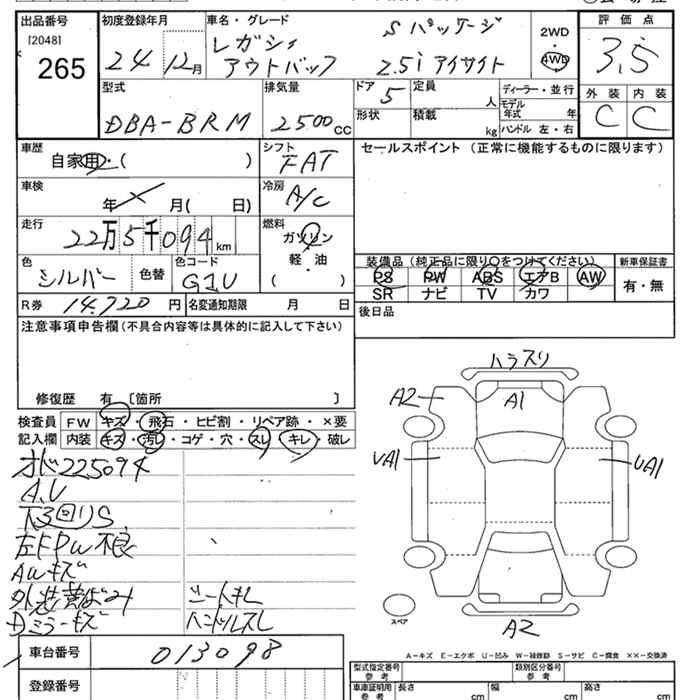 出品番号
[2048]
265
初度登録年月
24 12月
車名・グレード
レガシィ Sパッケージ
アウトバック 2.5i アイサイト
2WD
4WD
評価点
3.5
外装 内装
C C
型式
DBA-BRM
排気量
2500cc
ドア
5
形状
定員
人
積載
kg
ディーラー・並行
モデル年式 年
ハンドル 左・右
車歴
自家用・( )
シフト
FAT
車検
年 月( 日)
冷房
A/C
走行
22万5千094km
燃料
ガソリン
軽・油
( )
色
シルバー
色替
色コード
G1U
R券 14,720 円
名変通知期限 月 日
セールスポイント (正常に機能するものに限ります)
装備品 (純正品に限り○をつけてください)
PS PW ABS エアB AW
SR ナビ TV カワ
新車保証書
有・無
後日品
注意事項申告欄(不具合内容等は具体的に記入して下さい)
修復歴 有 〔箇所 〕
検査員
記入欄
FW キズ・飛石・ヒビ割・リペア跡・×要
内装 キズ・汚レ・コゲ・穴・スレ・キレ・破レ
オド225094
A.U
下3回りS
左FPW不良
AWキズ
外装黄ばみ
シートキレ
Dミラーキズ
ハンドルスレ
ハラスリ
A2
A1
UA1
UA1
スペア
A2
A-キズ E-エクボ U-凹み W-補修跡 S-サビ C-腐食 ××-交換済
車台番号 013098
登録番号
型式指定番号
参考
類別区分番号
参考
車庫証明用
参考
長さ cm
幅 cm
高さ cm